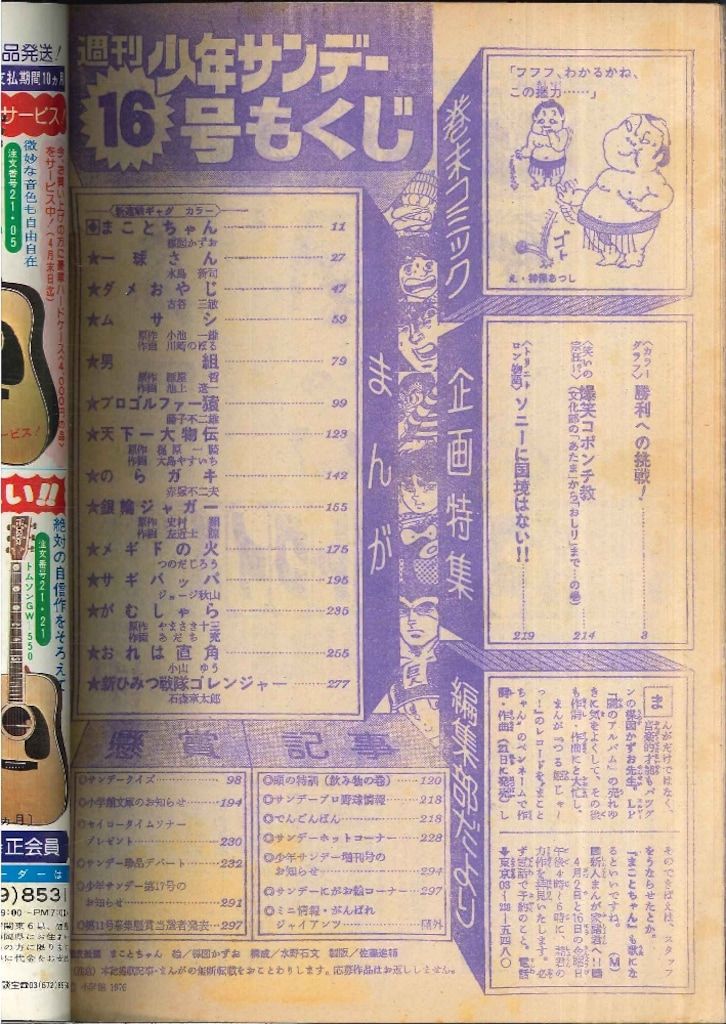 週刊 少年サンデー
16号もくじ
新連載ギャグ カラー
まことちゃん 11
楳図かずお
★一球さん 27
水島 新司
★ダメおやじ 47
古谷 三敏
★ムサシ 59
原作 小池 一雄
作画 川崎のぼる
★男組 79
原作 雁屋 哲
作画 池上 遼一
★プロゴルファー猿 99
藤子不二雄
★天下一大物伝 123
原作 梶原 一騎
作画 大島やすいち
★のらガキ 142
赤塚不二夫
★銀輪ジャガー 155
原作 史村 翔
作画 左近士 諒
★メギドの火 175
つのだじろう
★サギバッバ 195
ジョージ秋山
★がむしゃら 235
原作 やまさき十三
作画 あだち 充
★おれは直角 255
小山 ゆう
★新ひみつ戦隊ゴレンジャー 277
石森章太郎
まんが
巻末コミック
「フフフ、わかるかね、
この握力……」
ゴト
え・神保あつし
企画特集
〈カラーグラフ〉 勝利への挑戦！ 3
爆笑コポンチ教 214
(文化部の「あたま」から「おしり」まで…の巻)
ソニーに国境はない!! 219
編集部だより
まんがだけではなく、
音楽的才能もバツグ
ンの楳図かずお先生。LP
『闇のアルバム』の売れゆ
きに気をよくして、その後
も作詞・作曲にと大忙し。
そのできばえは、スタッフ
をうならせたとか。
『まことちゃん』も歌にな
るといいですね。 (M)
4月2日と16日の金曜日
午後4時～6時に、
懸賞
◎サンデークイズ 98
◎小学館文庫のお知らせ 194
◎セイロータイムソナー
プレゼント 230
◎サンデー珍品デパート 232
◎少年サンデー第17号の
お知らせ 291
◎第11号募集懸賞当選者発表 297
記事
◎頭の特訓(飲み物の巻) 120
◎サンデープロ野球情報 218
◎でんごんばん 218
◎サンデーホットコーナー 228
◎少年サンデー増刊号の
お知らせ 294
◎サンデーにがお絵コーナー 297
◎ミニ情報・がんばれ
ジャイアンツ 欄外
まことちゃん 絵／楳図かずお 構成／水野石文 製版／佐藤進精
本誌掲載記事・まんがの無断転載をおことわりします。応募作品はお返ししません。
小学館 1976
品発送！
支払期間10ヵ月
サービス！
をサービス中！(4月末日迄)
注文番号21・05
微妙な音色も自由自在
ビス！
い!!
絶対の自信作をそろえて
注文番号21・21
トムソンGW-550
カ月］
正会員
ダーは
9)853
9:00～PM7:0
関東6県、
の方に限りま